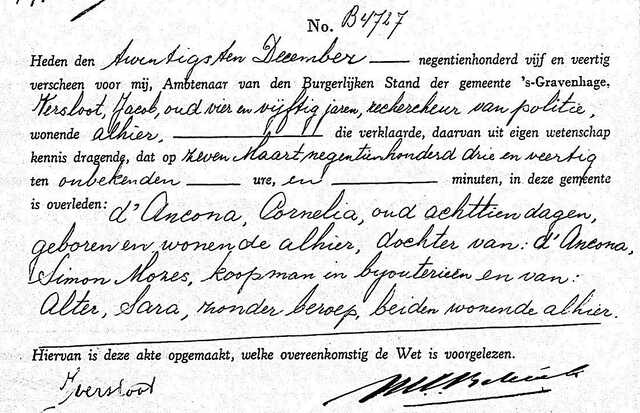 No. B4727
Heden den twintigsten December negentienhonderd vijf en veertig
verscheen voor mij, Ambtenaar van den Burgerlijken Stand der gemeente 's-Gravenhage,
Versloot, Jacob, oud vier en vijftig jaren, rechercheur van politie,
wonende alhier, die verklaarde, daarvan uit eigen wetenschap
kennis dragende, dat op zeven Maart negentienhonderd drie en veertig
ten onbekenden ure, en minuten, in deze gemeente
is overleden: d'Ancona, Cornelia, oud achttien dagen,
geboren en wonende alhier, dochter van: d'Ancona,
Simon Mozes, koopman in bijouterieën en van:
Alter, Sara, zonder beroep, beiden wonende alhier.
Hiervan is deze akte opgemaakt, welke overeenkomstig de Wet is voorgelezen.
JVersloot